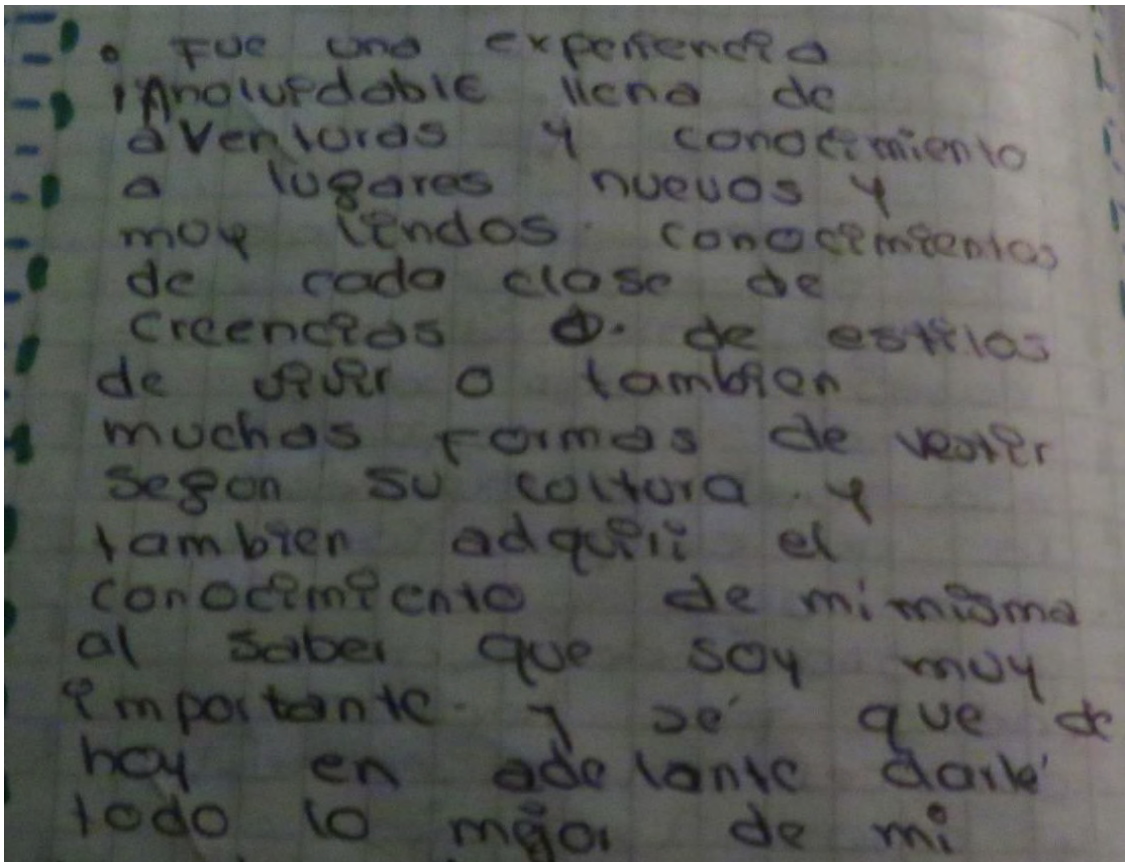 • Fue una experiencia
innolvidable llena de
aventuras y conocimiento
a lugares nuevos y
muy lindos. conocimientos
de cada clase de
creencias o. de estilos
de vivir o tambien
muchas formas de vestir
segun su cultura. y
tambien adquiri el
conocimiento de mi misma
al saber que soy muy
importante. y sé que de
hoy en adelante darle
todo lo mejor de mi